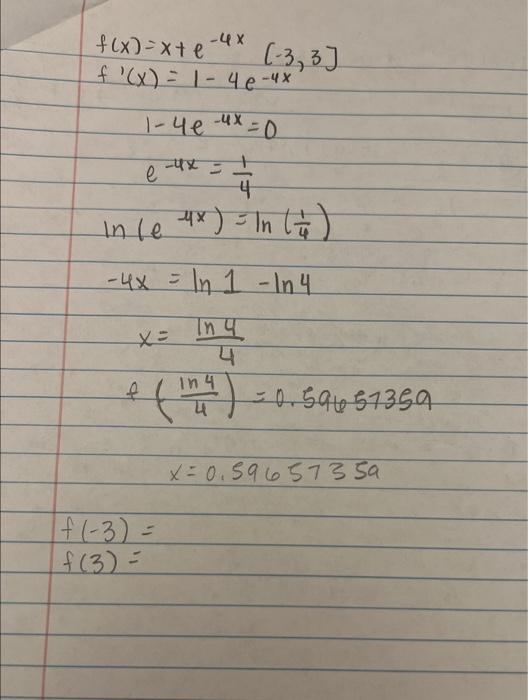 f(x)=x+e^-4x [-3,3]
f'(x) = 1 - 4e^-4x
1-4e^-4x=0
e^-4x = 1/4
ln(e^-4x) = ln(1/4)
-4x = ln 1 - ln 4
x = ln 4/4
f(ln 4/4) = 0.59657359
x = 0.59657359
f(-3) =
f(3) =